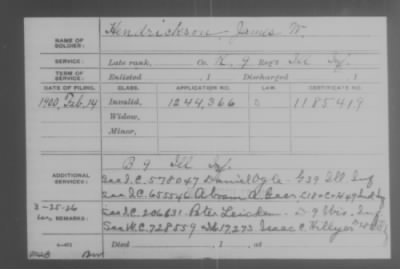 NAME OF SOLDIER: Hendrickson, James W.
SERVICE: Late rank, Co. K, 9 Reg't Ill Inf.
TERM OF SERVICE: Enlisted , 1 Discharged , 1
DATE OF FILING. CLASS. APPLICATION NO. CERTIFICATE NO.
1900, Feb. 14 Invalid, 1244,366 1185419
Widow,
Minor,
ADDITIONAL SERVICES: B 9 Ill Inf.
See I.C. 578047 Daniel Ogle - G 39 Ill Inf
See I.C. 655546 Abram A.
3-25-26
REMARKS: See I.C. 206631 Peter D 9 Inf
See W.C. 728559 Isaac C. Hillyer
Died , 1 , at